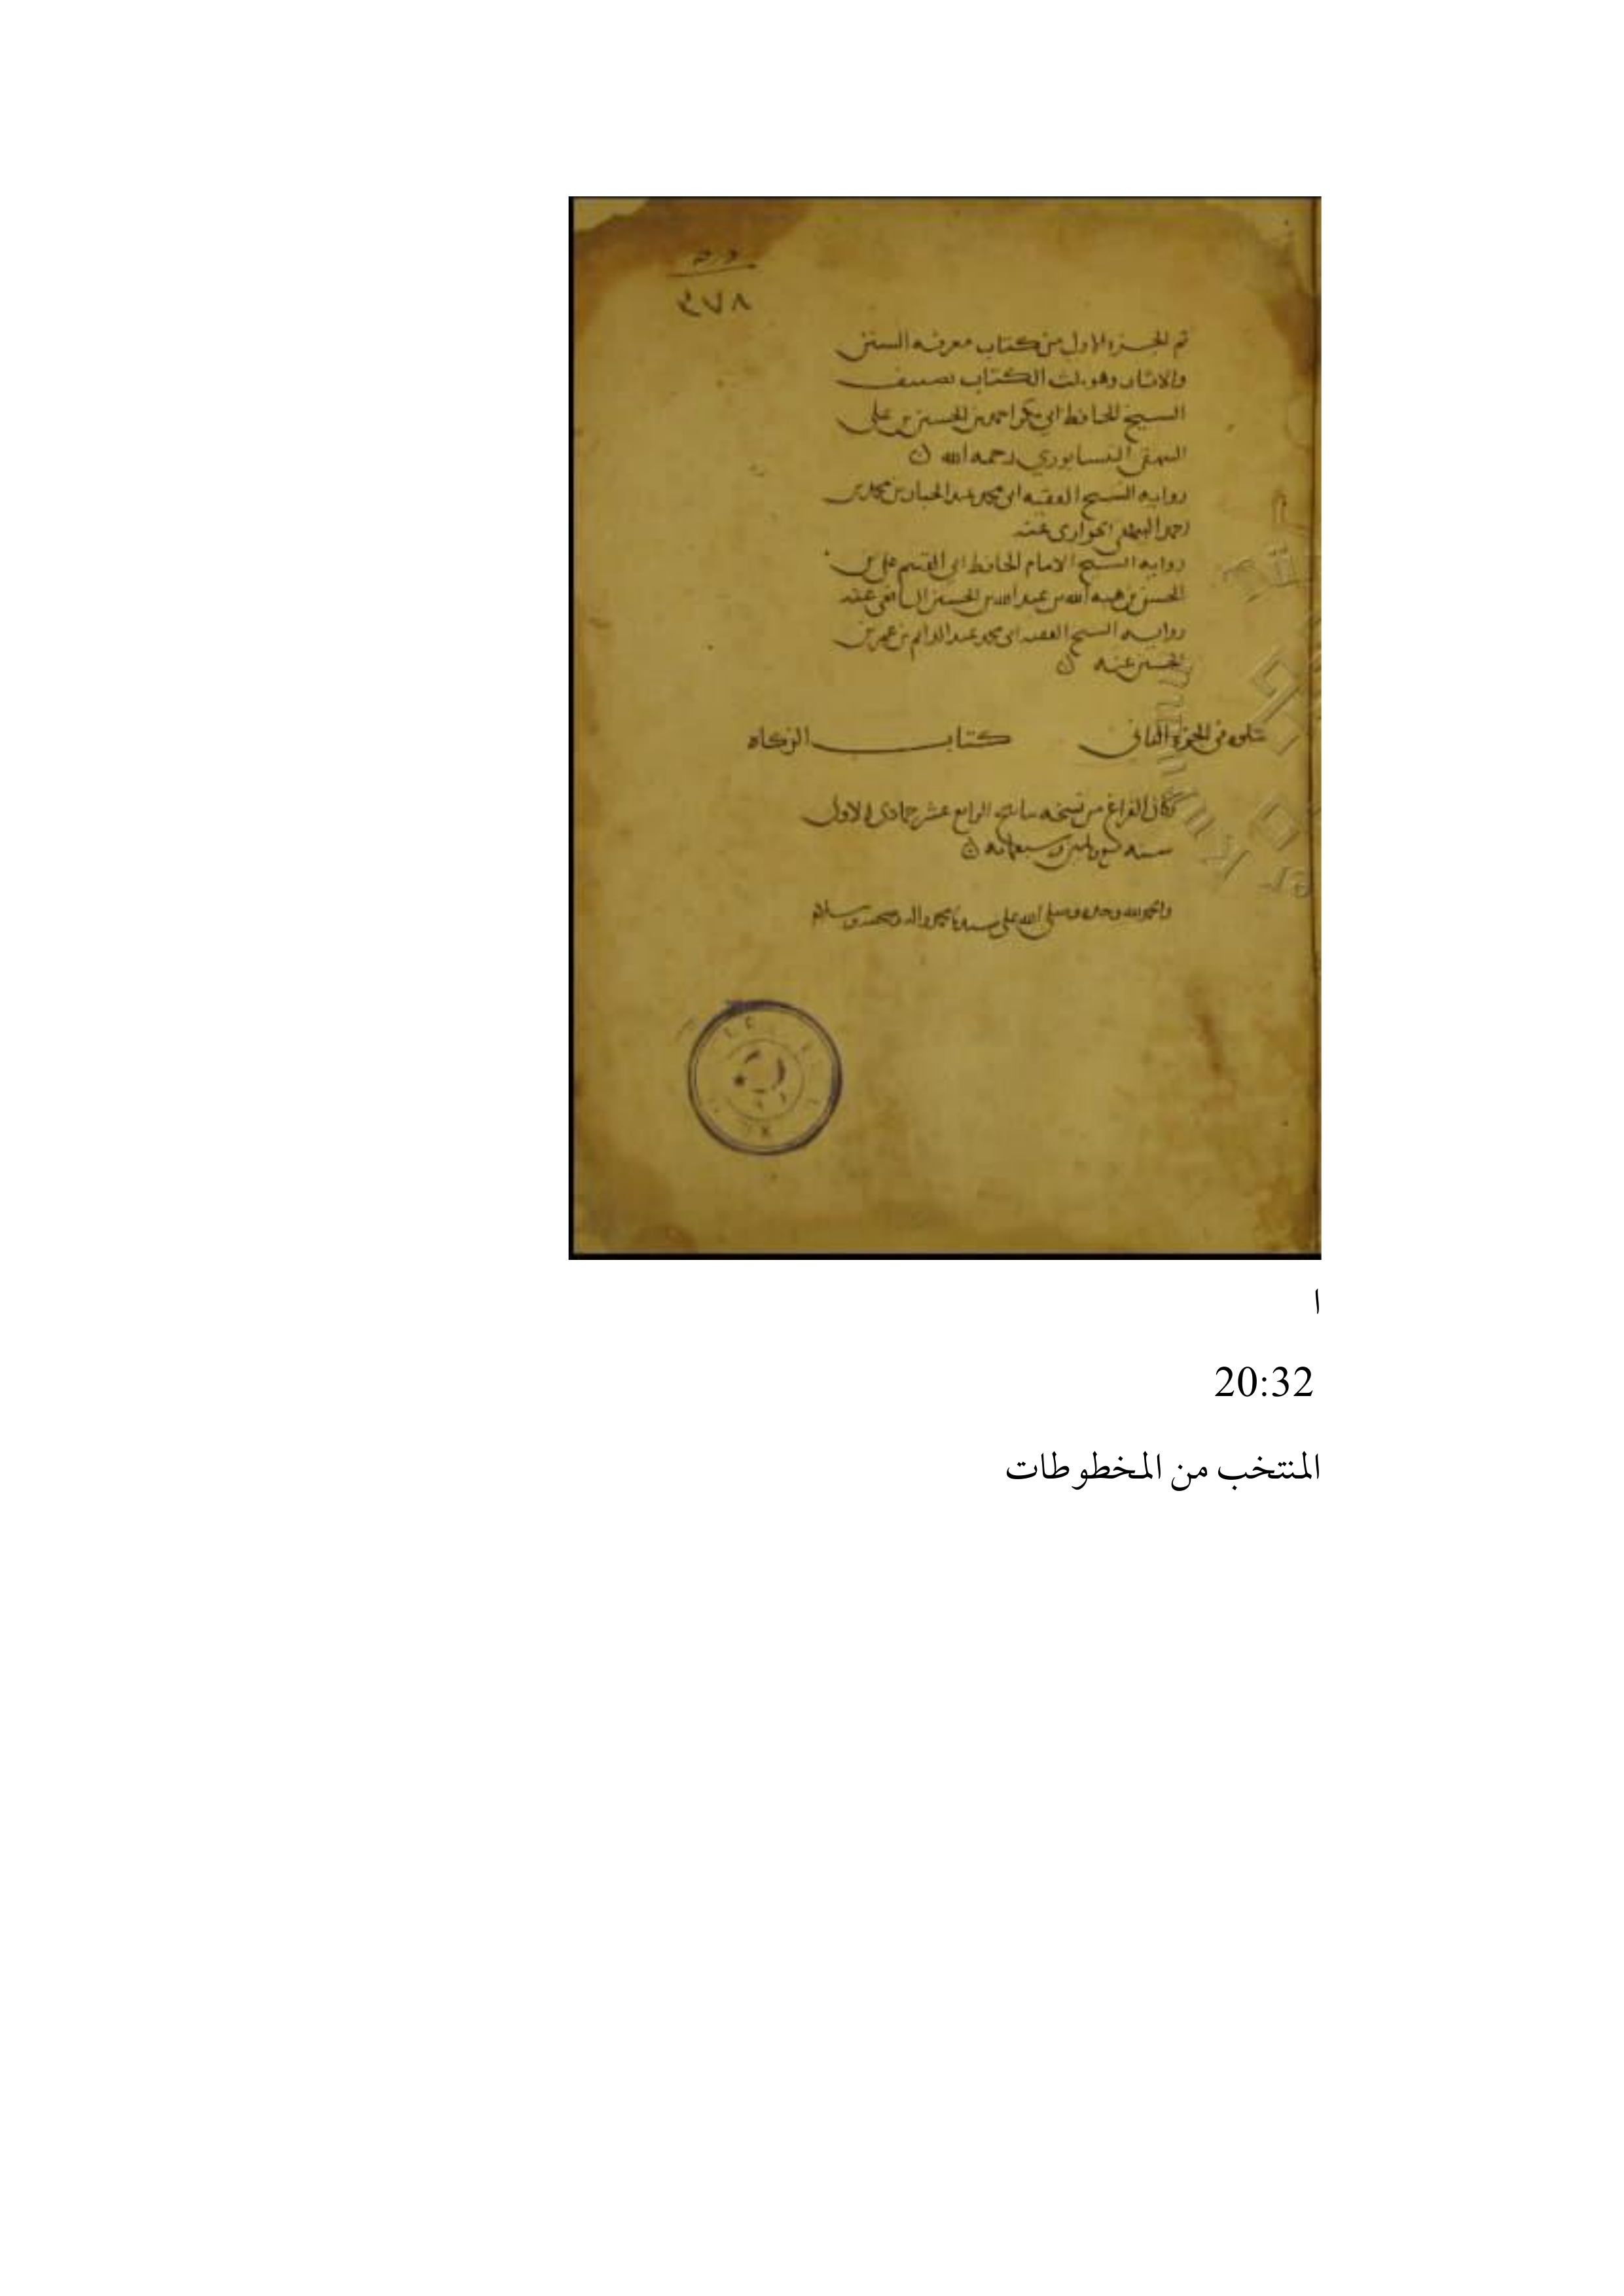 ورقة
٣٧٨
تم الجزء الاول من كتاب معرفه السنن
والاثار وهو ثلث الكتاب تصنيف
الشيخ الحافظ ابي بكر احمد بن الحسين بن علي
البيهقي النيسابوري رحمه الله
روايه الشيخ الفقيه ابي محمد عبد الجبار بن محمد بن
احمد البيهقي الخواري عنه
روايه الشيخ الامام الحافظ ابي القسم علي بن
الحسن بن هبه الله بن عبد الله بن الحسين الشافعي عنه
روايه الشيخ الفقيه ابي محمد عبد الدائم بن عمر بن
الحسين عنه
يتلوه في الجزء الثاني كتاب الزكاة
وكان الفراغ من نسخه الرابع عشر جمادى الاول
سنه وسبعمائه
والحمد لله وحده وصلى الله على سيدنا محمد واله وصحبه وسلم
ا
20:32
المنتخب من المخطوطات